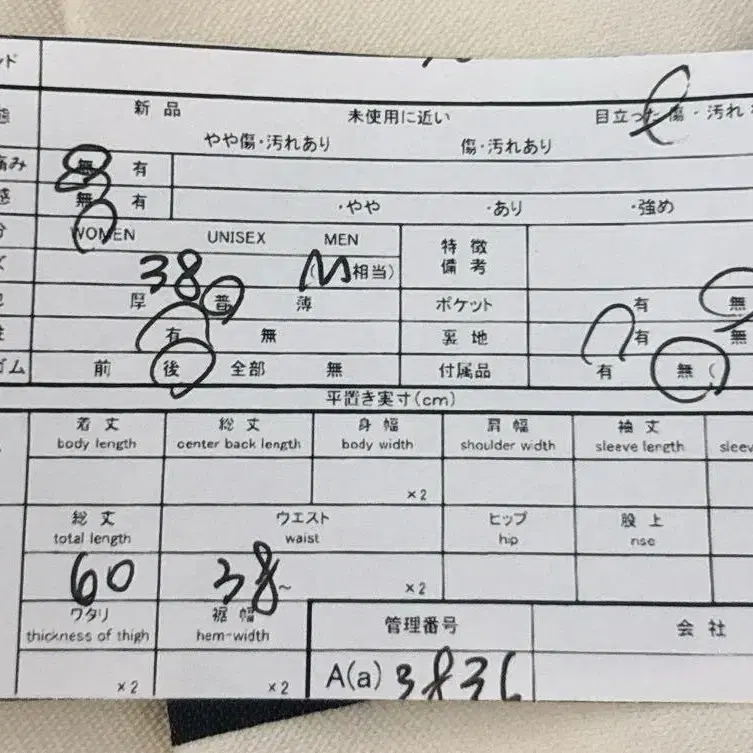 ド
新品 未使用に近い 目立った傷・汚れ
やや傷・汚れあり 傷・汚れあり
痛み 無 有
感 無 有 ・やや ・あり ・強め
WOMEN UNISEX MEN 特徴
備考
38 (M相当)
厚 普 薄 ポケット 有 無
有 無 裏地 有 無
ゴム 前 後 全部 無 付属品 有 無 (
平置き実寸(cm)
着丈 総丈 身幅 肩幅 袖丈
body length center back length body width shoulder width sleeve length sleev
×2
総丈 ウエスト ヒップ 股上
total length waist hip rise
60 38~ ×2
ワタリ 裾幅 管理番号 会社
thickness of thigh hem-width
×2 ×2 A(a) 3836